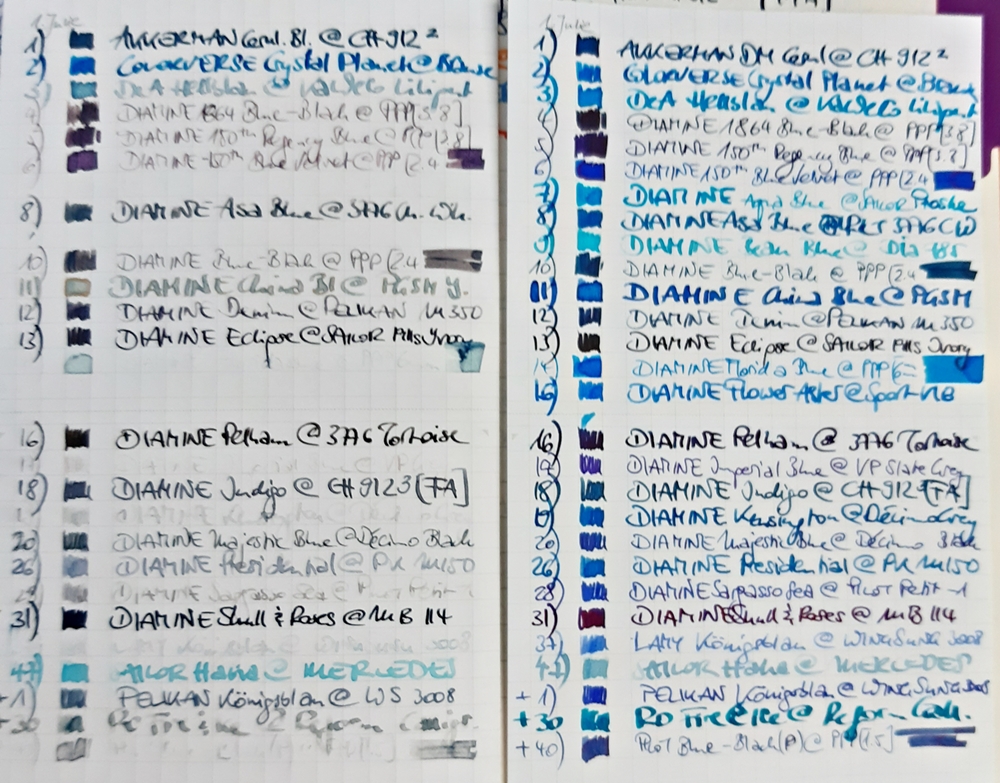 1. Julie
1) AKKERMAN Gerul. Bl. @ CH 912²
2) COLORVERSE Crystal Planet @
3) DeA @ Kaweco Liliput
4) DIAMINE 1864 Blue-Black @ PPP [3.8]
5) DIAMINE 150th Regency Blue @ PPP [3.8]
6) DIAMINE 150th Blue Velvet @ PPP [2.4
8) DIAMINE Asa Blue @ 3776
10) DIAMINE Blue-Black @ PPP [2.4
11) DIAMINE China Bl @ PGSM Y.
12) DIAMINE Denim @ PELIKAN M350
13) DIAMINE Eclipse @ SAILOR PMS Ivory
16) DIAMINE Pelham @ 3776 Tortoise
18) DIAMINE Indigo @ CH 9123 [FA]
20) DIAMINE Majestic Blue @ Décimo Black
26) DIAMINE Presidential @ PK M150
28) DIAMINE Sargasso Sea @ Pilot Petit-1
31) DIAMINE Skull & Roses @ MB 114
3008
47) SAILOR Hana @ MERCEDES
+1) PELIKAN Königsblau @ WS 3008
+30 Fire & Ice @ Reform
1. Julie
1) AKKERMAN DM Gerul @ CH 912²
2) COLORVERSE Crystal Planet @
3) DeA @ Kaweco Liliput
4) DIAMINE 1864 Blue-Black @ PPP [3.8]
5) DIAMINE 150th Regency Blue @ PPP [3.8]
6) DIAMINE 150th Blue Velvet @ PPP [2.4
7) DIAMINE Aqua Blue @ SAILOR
8) DIAMINE Asa Blue @ 3776
9) DIAMINE Blue @ Dia
10) DIAMINE Blue-Black @ PPP [2.4
11) DIAMINE China Blue @ PGSM
12) DIAMINE Denim @ PELIKAN M350
13) DIAMINE Eclipse @ SAILOR PMS Ivory
14) DIAMINE Florida Blue @ PPP
15) DIAMINE Flower Aster @ Sport NB
16) DIAMINE Pelham @ 3776 Tortoise
17) DIAMINE Imperial Blue @ VP Slate Grey
18) DIAMINE Indigo @ CH 9123 [FA]
19) DIAMINE Kensington @ Décimo Grey
20) DIAMINE Majestic Blue @ Décimo Black
26) DIAMINE Presidential @ PK M150
28) DIAMINE Sargasso Sea @ Pilot Petit-1
31) DIAMINE Skull & Roses @ MB 114
37) LAMY Königsblau @ WING SUNG 3008
47) SAILOR Hana @ MERCEDES
+1) PELIKAN Königsblau @ WING SUNG 3008
+30 RO Fire & Ice @ Reform
+40) Pilot Blue-Black (P) @ PPP [1.5]